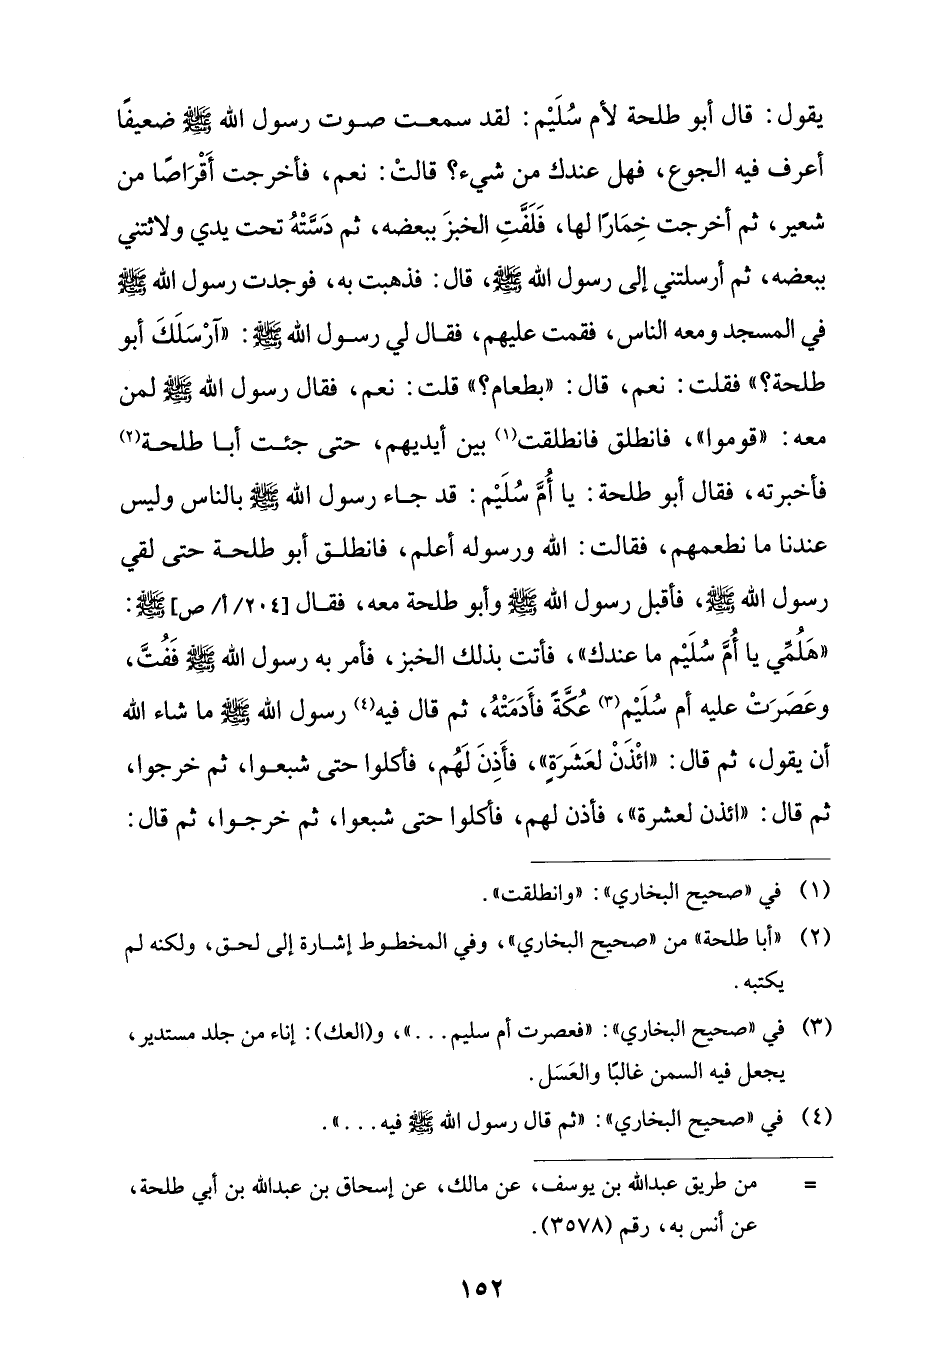 يقول: قال أبو طلحة لأم سُلَيْم: لقد سمعت صوت رسول الله ﷺ ضعيفًا
أعرف فيه الجوع، فهل عندك من شيء؟ قالتْ: نعم، فأخرجت أَقْرَاصًا من
شعير، ثم أخرجت خِمَارًا لها، فَلَفَّتِ الخبزَ ببعضه، ثم دَسَّتْهُ تحت يدي ولاثتني
ببعضه، ثم أرسلتني إلى رسول الله ﷺ، قال: فذهبت به، فوجدت رسول الله ﷺ
في المسجد ومعه الناس، فقمت عليهم، فقال لي رسول الله ﷺ: «آرْسَلَكَ أبو
طلحة؟» فقلت: نعم، قال: «بطعام؟» قلت: نعم، فقال رسول الله ﷺ لمن
معه: «قوموا»، فانطلق فانطلقت(١) بين أيديهم، حتى جئت أبا طلحة(٢)
فأخبرته، فقال أبو طلحة: يا أُمَّ سُلَيْم: قد جاء رسول الله ﷺ بالناس وليس
عندنا ما نطعمهم، فقالت: الله ورسوله أعلم، فانطلق أبو طلحة حتى لقي
رسول الله ﷺ، فأقبل رسول الله ﷺ وأبو طلحة معه، فقال [٢٠٤/أ/ص] ﷺ:
«هَلُمِّي يا أُمَّ سُلَيْم ما عندك»، فأتت بذلك الخبز، فأمر به رسول الله ﷺ فَفُتَّ،
وعَصَرَتْ عليه أم سُلَيْم(٣) عُكَّةً فأَدَمَتْهُ، ثم قال فيه(٤) رسول الله ﷺ ما شاء الله
أن يقول، ثم قال: «ائْذَنْ لعَشَرَةٍ»، فأَذِنَ لَهُم، فأكلوا حتى شبعوا، ثم خرجوا،
ثم قال: «ائذن لعشرة»، فأذن لهم، فأكلوا حتى شبعوا، ثم خرجوا، ثم قال:
(١) في «صحيح البخاري»: «وانطلقت».
(٢) «أبا طلحة» من «صحيح البخاري»، وفي المخطوط إشارة إلى لحق، ولكنه لم
يكتبه.
(٣) في «صحيح البخاري»: «فعصرت أم سليم...»، و(العك): إناء من جلد مستدير،
يجعل فيه السمن غالبًا والعَسَل.
(٤) في «صحيح البخاري»: «ثم قال رسول الله ﷺ فيه...».
= من طريق عبدالله بن يوسف، عن مالك، عن إسحاق بن عبدالله بن أبي طلحة،
عن أنس به، رقم (٣٥٧٨).
١٥٢